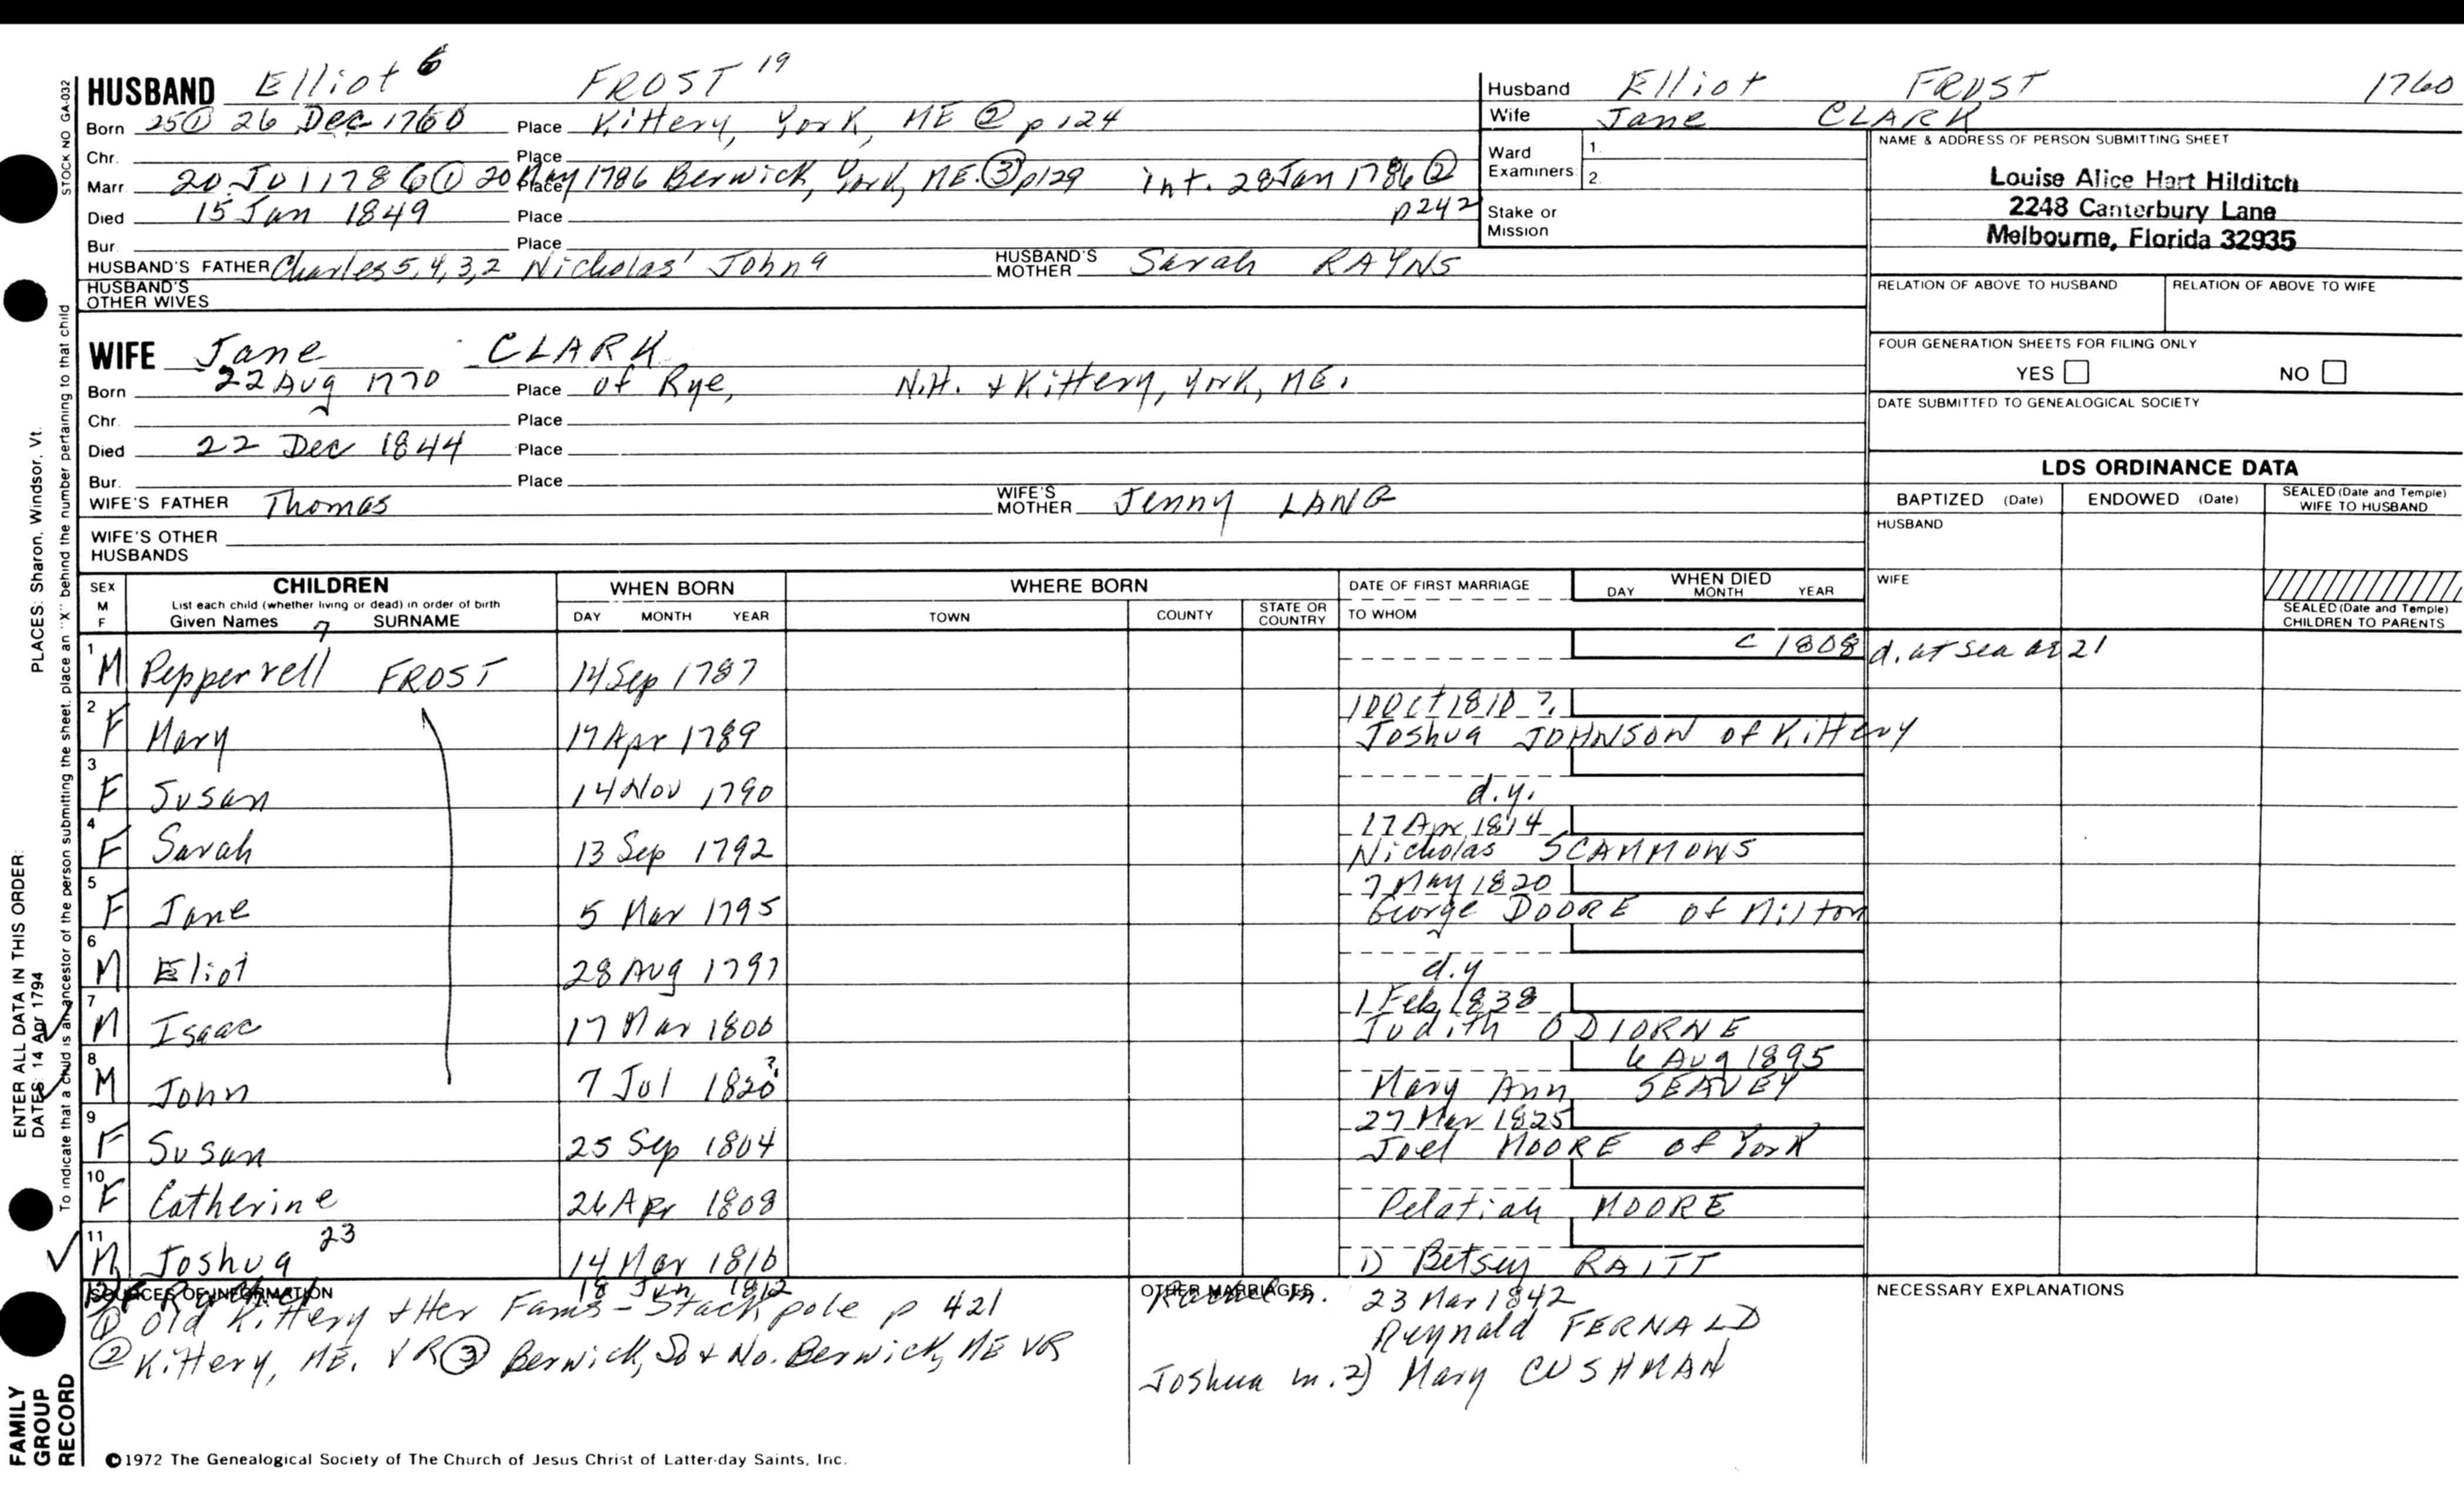 HUSBAND Elliot 6 FROST 19
Born 25① 26 Dec 1760 Place Kittery, York, ME ② p 124
Chr. Place
Marr. 20 Jul 1786 ① 20 May 1786 Place Berwick, York, ME. ③ p129 Int. 28 Jan 1786 ② p242
Died 15 Jan 1849 Place
Bur. Place
HUSBAND'S FATHER Charles 5, 4, 3, 2 Nicholas' John 9 HUSBAND'S MOTHER Sarah RAYNS
HUSBAND'S OTHER WIVES
Husband Elliot FROST 1760
Wife Jane CLARK
Ward Examiners 1. 2.
Stake or Mission
NAME & ADDRESS OF PERSON SUBMITTING SHEET
Louise Alice Hart Hilditch
2248 Canterbury Lane
Melbourne, Florida 32935
RELATION OF ABOVE TO HUSBAND RELATION OF ABOVE TO WIFE
FOUR GENERATION SHEETS FOR FILING ONLY
YES NO
DATE SUBMITTED TO GENEALOGICAL SOCIETY
WIFE Jane CLARK
Born 22 Aug 1770 Place of Rye, N.H. + Kittery, York, ME.
Chr. Place
Died 22 Dec 1844 Place
Bur. Place
WIFE'S FATHER Thomas WIFE'S MOTHER Jenny LANG
WIFE'S OTHER HUSBANDS
LDS ORDINANCE DATA
BAPTIZED (Date) ENDOWED (Date) SEALED (Date and Temple) WIFE TO HUSBAND
HUSBAND
WIFE
SEALED (Date and Temple) CHILDREN TO PARENTS
SEX M F CHILDREN WHEN BORN WHERE BORN DATE OF FIRST MARRIAGE WHEN DIED
List each child (whether living or dead) in order of birth
Given Names 7 SURNAME DAY MONTH YEAR TOWN COUNTY STATE OR COUNTRY TO WHOM DAY MONTH YEAR
1 M Pepperrell FROST 14 Sep 1787 c 1808 d. at sea ae 21
2 F Mary 17 Apr 1789 10 Oct 1810 ?. Joshua JOHNSON of Kittery
3 F Susan 14 Nov 1790 d.y.
4 F Sarah 13 Sep 1792 17 Apr 1814 Nicholas SCAMMONS
5 F Jane 5 Mar 1795 7 May 1820 George DOORE of Milton
6 M Eliot 28 Aug 1797 d.y
7 M Isaac 17 Mar 1800 1 Feb 1838 Judith ODIORNE
8 M John 7 Jul 1820 ? 6 Aug 1895 Mary Ann SEAVEY
9 F Susan 25 Sep 1804 27 Mar 1825 Joel MOORE of York
10 F Catherine 26 Apr 1808 Pelatiah MOORE
11 M Joshua 23 14 Mar 1810 1) Betsey RAITT
12 F Rachel 18 Jun 1812
SOURCES OF INFORMATION
① Old Kittery & Her Fams - Stackpole p 421
② Kittery, ME. VR ③ Berwick, So + No. Berwick, ME VR
OTHER MARRIAGES
Rachel m. 23 Mar 1842
Reynald FERNALD
Joshua m. 2) Mary CUSHMAN
NECESSARY EXPLANATIONS
©1972 The Genealogical Society of The Church of Jesus Christ of Latter-day Saints, Inc.
STOCK NO GA-032
To indicate that a child is an ancestor of the person submitting the sheet, place an "X" behind the number pertaining to that child
PLACES: Sharon, Windsor, Vt.
ENTER ALL DATA IN THIS ORDER:
DATES: 14 Apr 1794
FAMILY
GROUP
RECORD